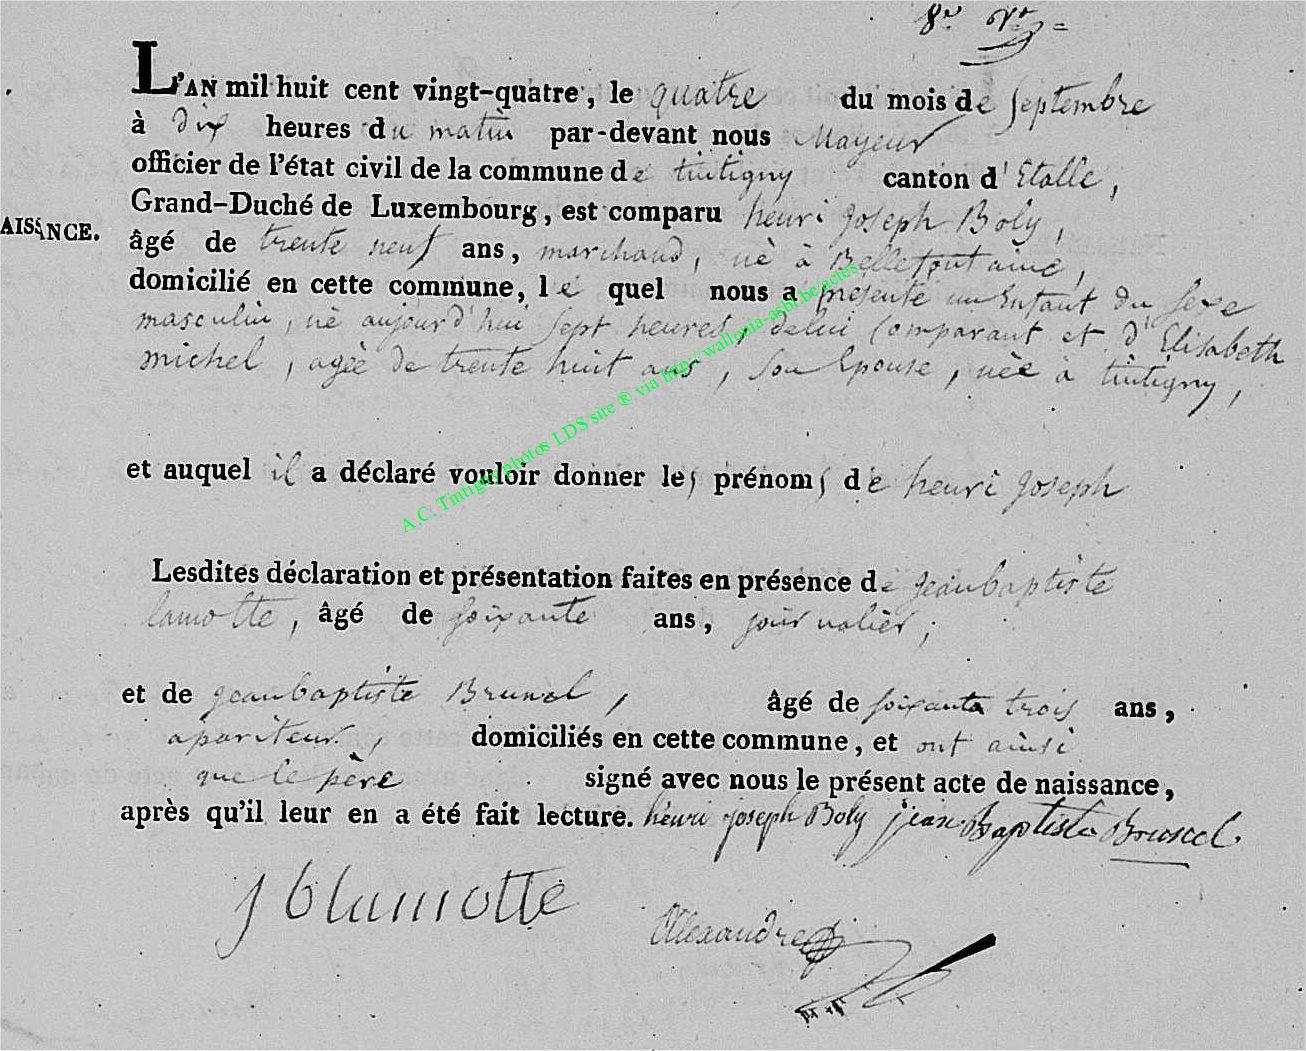 8e. Vt.
L'AN mil huit cent vingt-quatre, le quatre du mois de septembre
à dix heures du matin par-devant nous Mayeur
officier de l'état civil de la commune de tintigny canton d'Etalle,
Grand-Duché de Luxembourg, est comparu henri joseph Boly,
AISSANCE.
âgé de trente neuf ans, marchand, né à Bellefontaine,
domicilié en cette commune, le quel nous a présenté un Enfant du sexe
masculin, né aujourd'hui sept heures, delui Comparant et d'Elisabeth
michel, agée de trente huit ans, son Epouse, née à tintigny,
et auquel il a déclaré vouloir donner les prénoms de henri joseph
Lesdites déclaration et présentation faites en présence de jeanbaptiste
lamotte, âgé de soixante ans, journalier;
et de jeanbaptiste Brunel, âgé de soixante trois ans,
apariteur, domiciliés en cette commune, et ont ainsi
que le père signé avec nous le présent acte de naissance,
après qu'il leur en a été fait lecture. henri joseph Boly jean Baptiste Brunel
J b lamotte
Alexandre
A.C. Tintigny photos LDS site ® via http://wallonia-asbl.be/actes